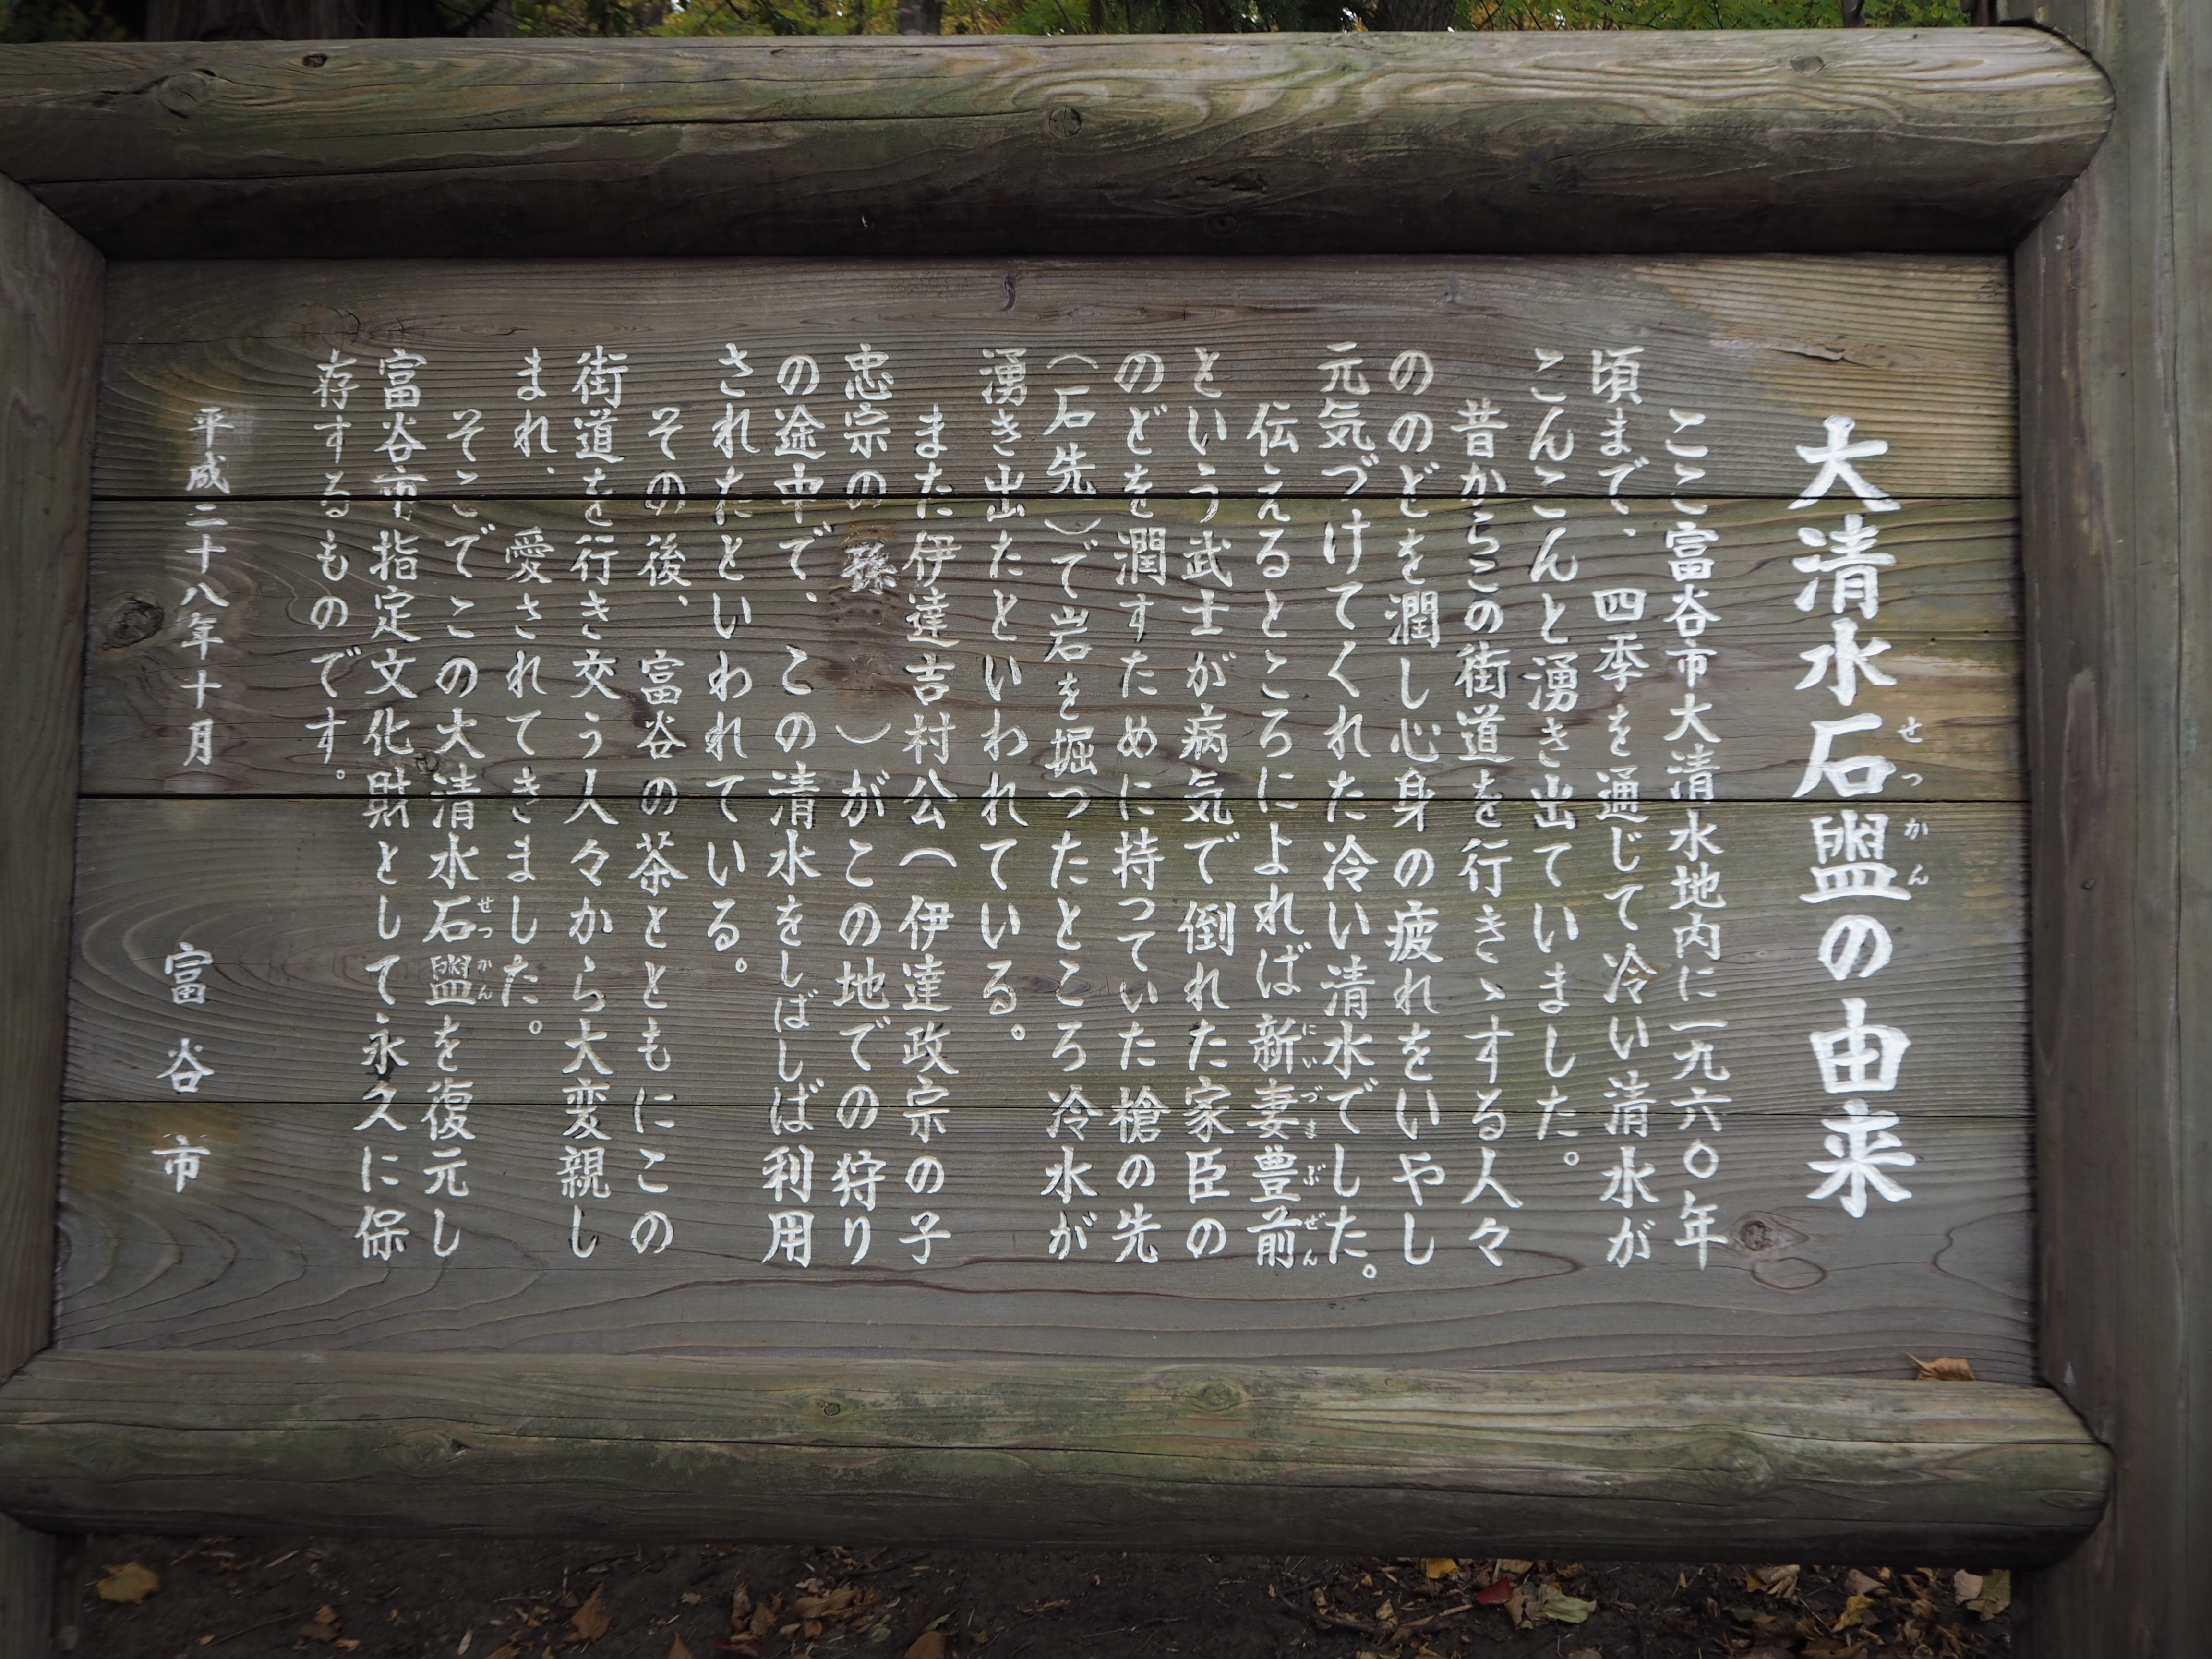 大清水石盥の由来
せっかん
ここ富谷市大清水地内に一九六〇年
頃まで、四季を通じて冷い清水が
こんこんと湧き出ていました。
昔からこの街道を行きゝする人々
ののどを潤し心身の疲れをいやし
元気づけてくれた冷い清水でした。
伝えるところによれば新妻豊前
にいづまぶぜん
という武士が病気で倒れた家臣の
のどを潤すために持っていた槍の先
(石先)で岩を堀ったところ冷水が
湧き出たといわれている。
また伊達吉村公(伊達政宗の子
忠宗の孫)がこの地での狩り
の途中で、この清水をしばしば利用
されたといわれている。
その後、富谷の茶とともにこの
街道を行き交う人々から大変親し
まれ、愛されてきました。
そこでこの大清水石盥を復元し
せっかん
富谷市指定文化財として永久に保
存するものです。
平成二十八年十月
富谷市